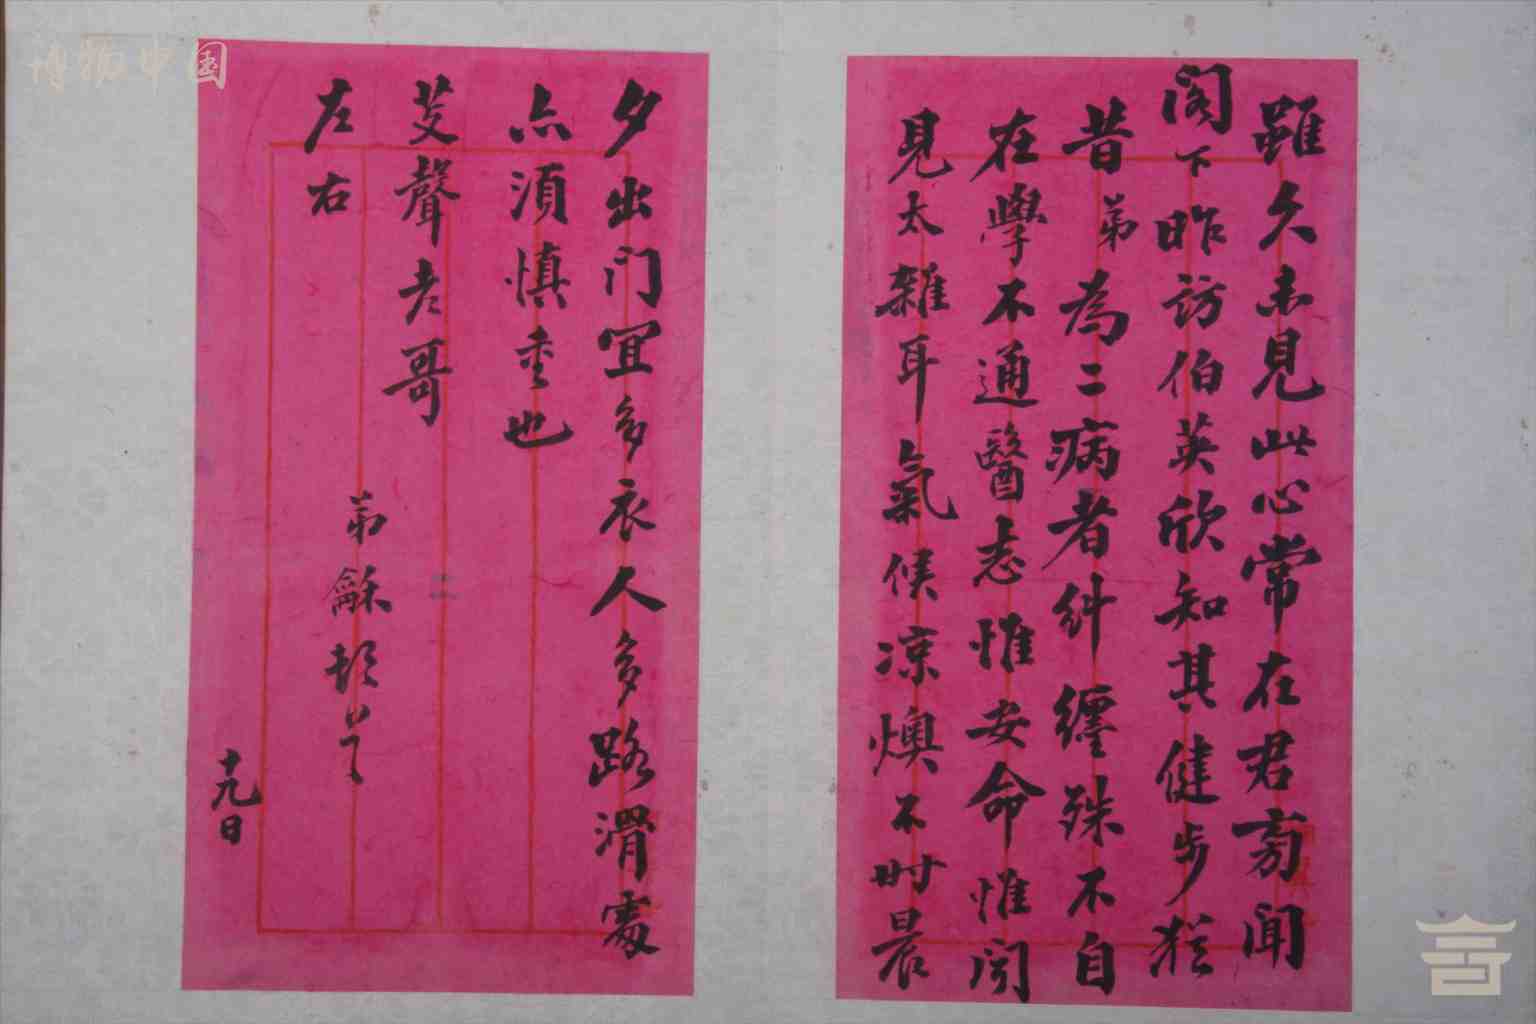 雖久未見此心常在君旁聞
閣下昨訪伯英欣知其健步猶
昔弟為二病者糾纏殊不自
在學不通醫志惟安命惟閱
見太雜耳氣候凉燠不时晨
夕出门宜多衣人多路滑處
亦須慎重也
艾聲老哥
左右
弟龢頓首
十九日
博物中国